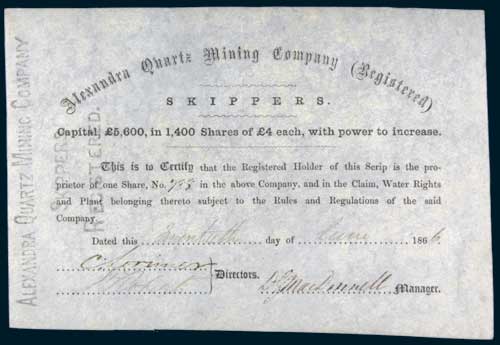 Alexandra Quartz Mining Company (Registered)
SKIPPERS.
Capital, £5,600, in 1,400 Shares of £4 each, with power to increase.
This is to Certify that the Registered Holder of this Scrip is the pro-
prietor of one Share, No. in the above Company, and in the Claim, Water Rights
and Plant belonging thereto subject to the Rules and Regulations of the said
Company.
Dated this Twentieth day of June 1866.
Directors.
D. MacDonnell Manager.
ALEXANDRA QUARTZ MINING COMPANY
SKIPPERS
REGISTERED.